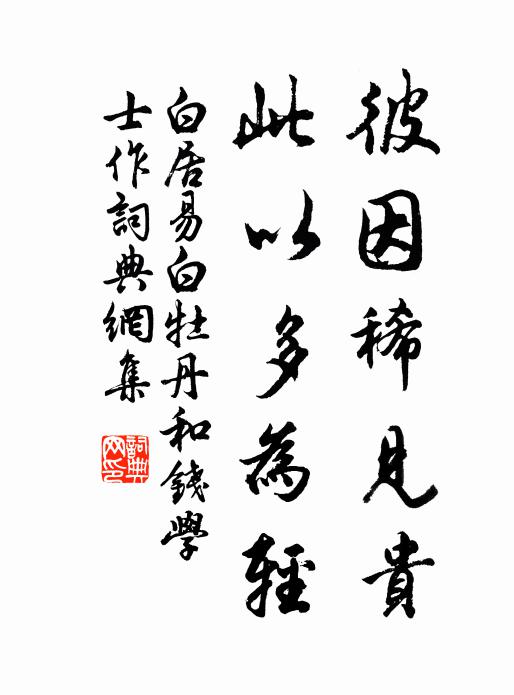 彼因稀見貴
此以多為輕
白居易白牡丹和錢學
士作詞典網集
詞典
网印